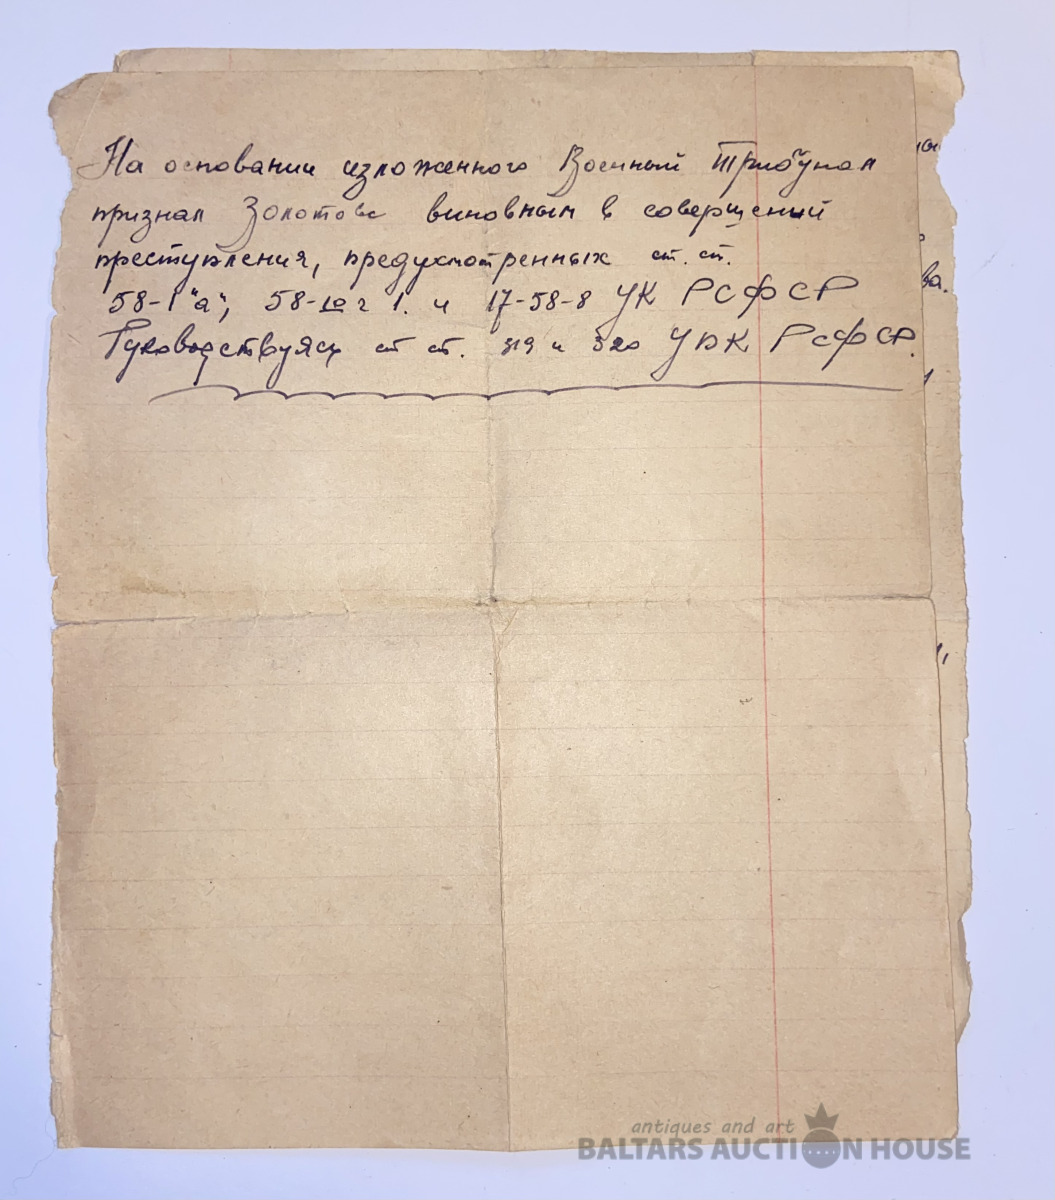 На основании изложенного Военный Трибунал
признал Золотова виновным в совершений
преступления, предусмотренных ст. ст.
58-1 "а", 58-10 ч 1. и 17-58-8 УК РСФСР
Руководствуясь ст ст. 319 и 320 УПК РСФСР.
antiques and art
BALTARS AUCTION HOUSE